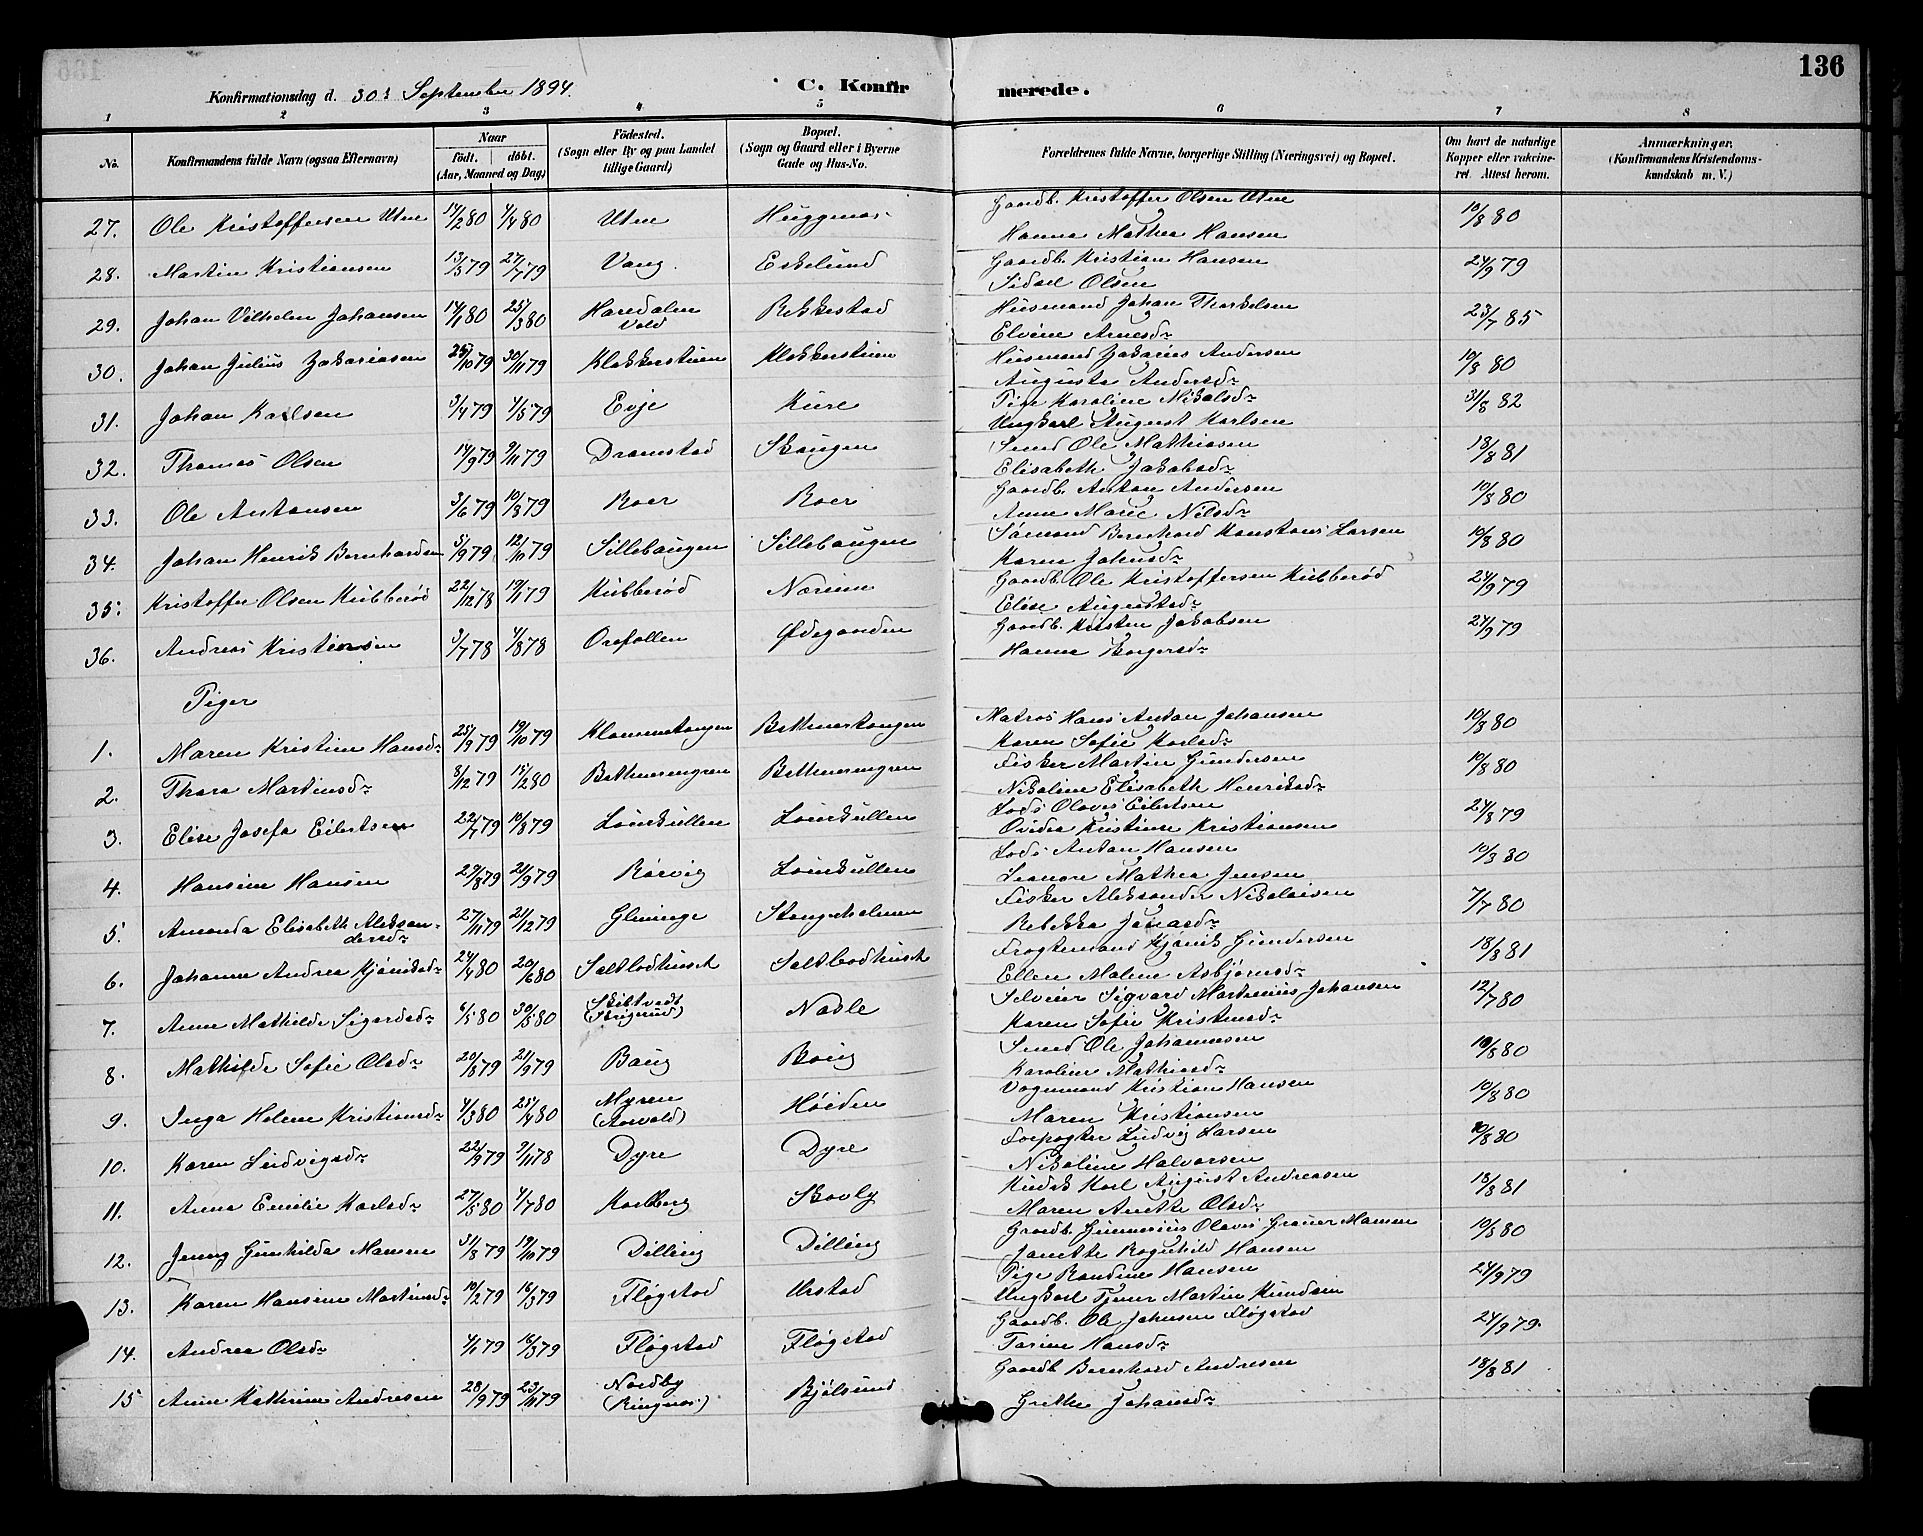 136
Konfirmationsdag d. 30t September 1894. C. Konfirmerede.
1 2 3 4 5 6 7 8
No. Konfirmandens fulde Navn (ogsaa Efternavn) Naar födt. döbt. (Aar, Maaned og Dag) Födested. (Sogn eller By og paa Landet tillige Gaard) Bopæl. (Sogn og Gaard eller i Byerne Gade og Hus-No. Forældrenes fulde Navne, borgerlige Stilling (Næringsvei) og Bopæl. Om havt de naturlige Kopper eller vakcineret. Attest herom. Anmærkninger. (Konfirmandens Kristendomskundskab m. V.)
27. Ole Kristoffersen Utne 14/2 80 4/4 80 Utne Huggenes Gaardb. Kristoffer Olsen Utne 10/8 80
Hanna Mathea Hansen
28. Martin Kristiansen 13/5 79 27/7 79 Vang. Eskelund Gaardb. Kristian Hansen 24/9 79
Sidsel Olsen
29. Johan Vilhelm Johansen 14/1 80 25/3 80 Vold Rekkestad Husmand Johan Thorkelsen 23/7 85
Elvine Arnesdr
30. Johan Julius Zakariasen 25/10 79 30/11 79 Klokkerstuen Klokkerstuen Husmand Zakarias Andersen 10/8 80
Augusta Andersdr
31. Johan Karlsen 3/4 79 4/5 79 Evje Kure Pige Karoline Nikolsdr 31/8 82
Ungkarl August Karlsen
32. Thomas Olsen 14/9 79 9/11 79 Dramstad Skaugen Smed Ole Mathiasen 18/8 81
Elisabeth Jakobsdr
33. Ole Antonsen 3/6 79 10/8 79 Roer Roer Gaardb. Anton Andersen 10/8 80
Anne Marie Nilsdr
34. Johan Henrik Bernhardsen 5/9 79 12/10 79 Sillebaugen Sillebaugen Sømand Bernhard Konstans Larsen 10/8 80
Karen Johnsdr
35. Kristoffer Olsen Kubberød 22/12 78 19/1 79 Kubberød Nærum Gaardb. Ole Kristoffersen Kubberød 24/9 79
Elise Augustsdr
36. Andreas Kristensen 3/7 78 4/8 78 Orefollen Ødegaarden Gaardb. Kristen Jakobsen 24/9 79
Hanne Borgersdr
Piger
1. Maren Kristine Hansdr 25/9 79 19/10 79 Klommestangen Bettumstangen Matros Hans Anton Johansen 10/8 80
Karen Sofie Karlsdr
2. Thora Martinsdr 8/12 79 15/2 80 Bethumengren Bethumengren Fisker Martin Gundersen 10/8 80
Nikoline Elisabeth Henriksdr
3. Elise Josefa Eilertsen 22/7 79 10/8 79 Louiskullen Louiskullen Lods Olaves Eilertsen 24/8 79
Ovidia Kristine Kristiansen
4. Hansine Hansen 29/8 79 21/9 79 Rørvig Louiskullen Lods Anton Hansen 10/8 80
Leonore Mathea Jensen
5. Amanda Elisabeth Aleksandersdr 27/11 79 21/12 79 Gleninge Stangeholmen Fisker Aleksander Nikolaisen 7/7 80
Rebekka Jonasdr
6. Johanne Andrea Kjøniksdr 24/4 80 20/6 80 Saltbodhuset Saltbodhuset Fragtemand Kjønik Gundersen 18/8 81
Ellen Malene Asbjørnsdr
7. Anne Mathilde Sigurdsdr 6/5 80 30/5 80 Skibtvedt Nasle Selveier Sigvard Marthinius Johansen 12/7 80
Karen Sofie Kristensdr
8. Mathilde Sofie Olsdr 20/8 79 21/9 79 Baug Boug Smed Ole Johannesen 10/8 80
Karoline Mathiasdr
9. Inga Helene Kristiansdr 4/3 80 25/4 80 Myren (Arvold) Høiden Vognmand Kristian Hansen 10/8 80
Maren Kristiansen
10. Karen Ludvigsdr 22/9 79 9/11 78 Dyre Dyre Forpagter Ludvig Larsen 10/8 80
Nikoline Halvorsen
11. Anna Emilie Karlsdr 27/5 80 4/7 80 Karlberg Skovly Kudsk Karl August Andreasen 18/8 81
Maren Anette Olsdr
12. Jenny Gunhilda Hansen 31/8 79 19/10 79 Dilling Dilling Gaardb. Gunnerius Olaves Grauer Hansen 10/8 80
Janette Ragnhild Hansen
13. Karen Hansine Martinsdr 10/2 79 16/3 79 Fløgstad Urstad Pige Randine Hansen 24/9 79
Ungkarl Tjener Martin Knudsen
14. Andrea Olsdr 4/1 79 16/3 79 Fløgstad Fløgstad Gaardb. Ole Johnsen Fløgstad 24/9 79.
Torine Hansdr
15 Anne Kathrine Andresen 28/9 79 23/11 79 Nordby (Ringnes) Bjølsund Gaardb Bernhard Andresen 18/8 81
Grethe Johansdr